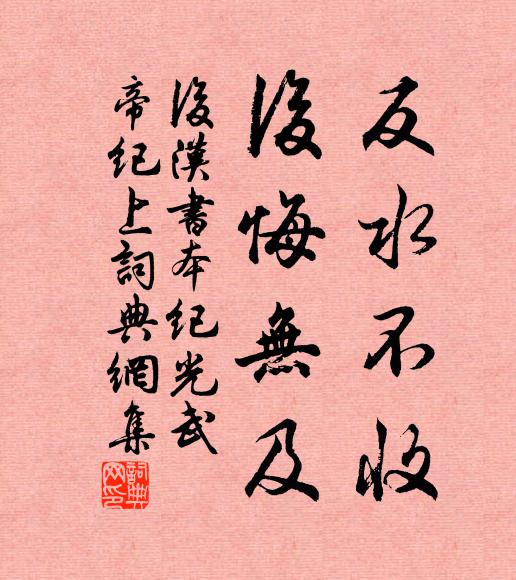 反水不收
後悔無及
後漢書本紀光武
帝紀上詞典網集
詞典網印